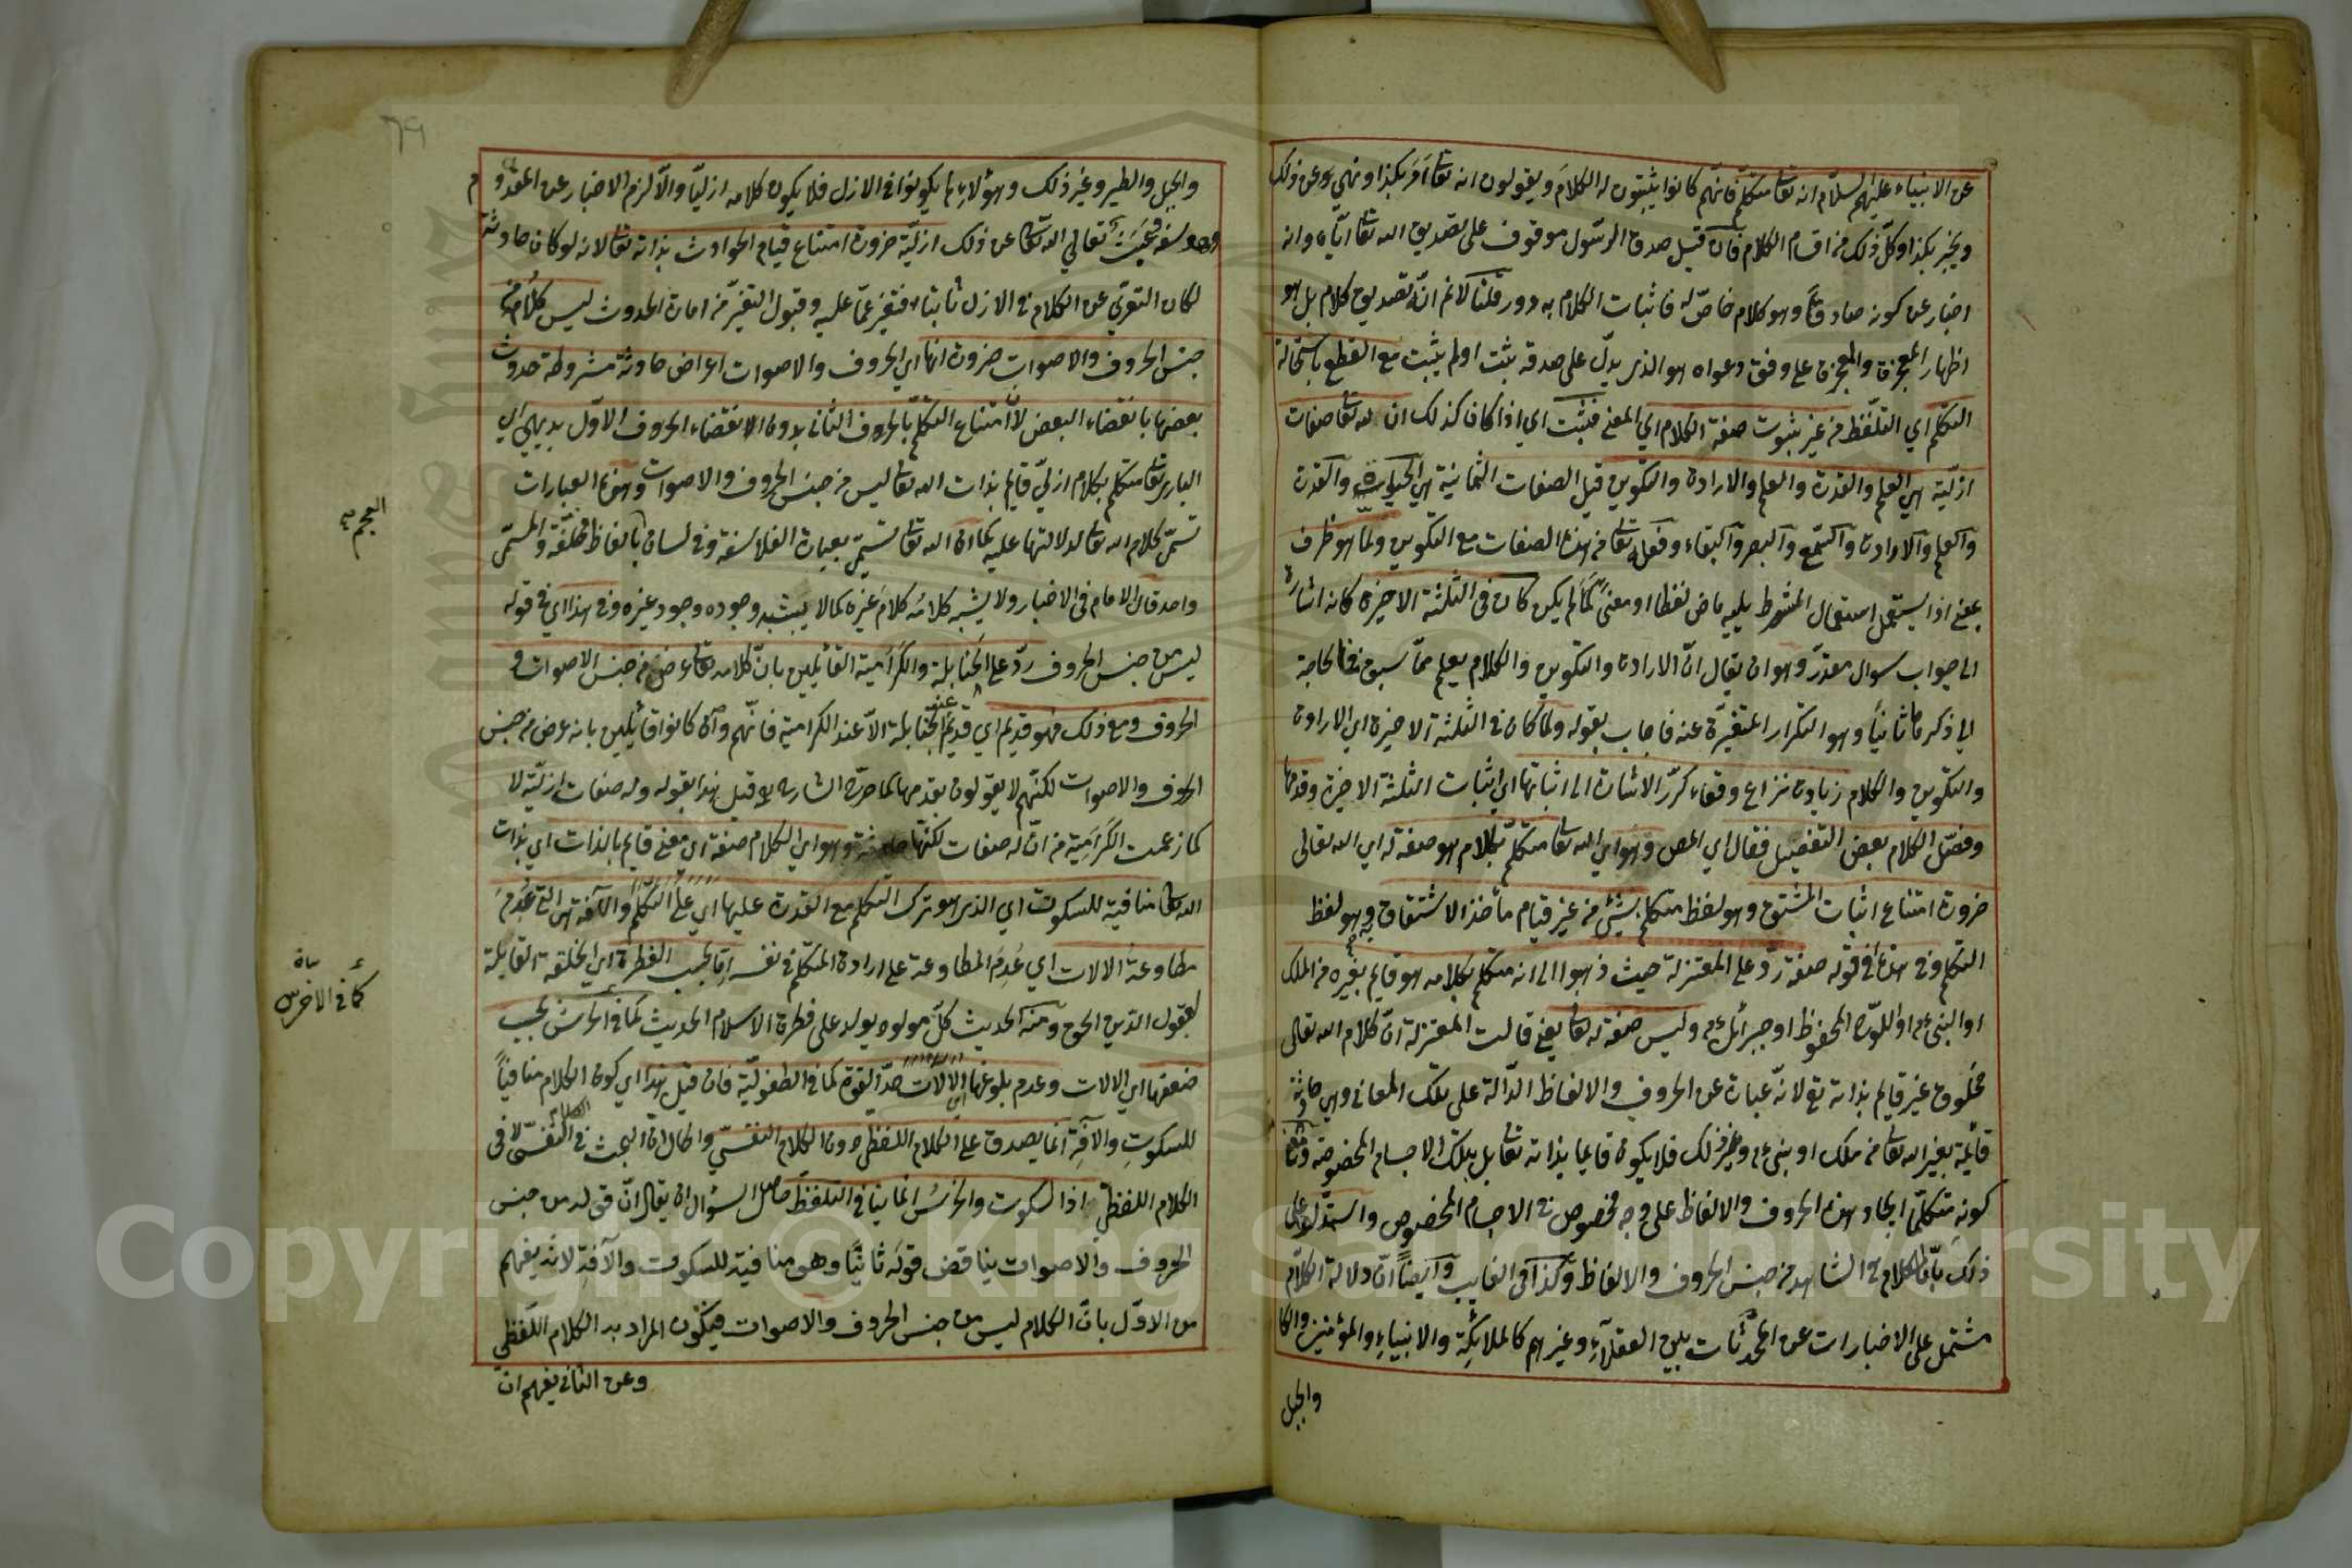 عن الانبياء عليهم السلام انه تعا متكلم فانهم كانوا يثبتون له الكلام ويقولون انه تعا امر بكذا ونهي عن ذلك
ويخبر بكذا وكل ذلك من اقسام الكلام فان قيل صدق الرسول موقوف على تصديق الله تعا اياه وانه
اخبار عن كونه صادقا وهو كلام خاص له فاثبات الكلام به دور قلنا لانم انه تصديق كلام بل هو
اظهار المعجزة والمعجزة على وفق دعواه هو الذي يدل على صدقه ثبت اولم يثبت مع القطع باستحالة
التكلم اي التلفظ من غير ثبوت صفة الكلام اي المعنى فثبت اي اذا كان كذلك ان لله تعا صفات
ازلية هي العلم والقدرة والعلم والارادة والتكوين قيل الصفات الثمانية هي الحيوة والقدرة
والعلم والارادة والسمع والبصر والبقاء وفعله تعا من هذه الصفات مع التكوين ولما هو ظرف
بمعنى اذا يستعمل استعمال الشرط يليه ماض لفظا او معنى كما لم يكن كان في الثلثة الاخيرة كانه اشارة
الى جواب سوال مقدر وهو ان يقال ان الارادة والتكوين والكلام يعلم مما سبق فما الحاجة
الى ذكرها ثانيا وهو التكرار عنه فاجاب بقوله ولما كان في الثلثة الاخيرة اي الارادة
والتكوين والكلام زيادة نزاع وخفاء كرر الاشارة الى اثباتها اي اثبات الثلثة الاخيرة وقدمها
وفصل الكلام بعض التفصيل فقال اي المص وهو اي الله تعا متكلم بكلام هو صفة له اي الله تعالى
ضرورة امتناع اثبات المشتق وهو لفظ متكلم بشيئ من غير قيام مأخذ الاشتقاق وهو لفظ
التكلم وفي هذا اي في قوله صفة رد على المعتزلة حيث ذهبوا الى انه متكلم بكلام هو قايم بغيره من الملك
او النبي او اللوح المحفوظ او جبرائل وليس صفة له تعا يعني قالت المعتزلة ان كلام الله تعالى
مخلوق غير قايم بذاته تع لانه عبارة عن الحروف والالفاظ الدالة على تلك المعاني وهي حادثة
قائمة بغير الله تعا من ملك او نبي وغير ذلك فلا يكون قايما بذاته تعا بل بتلك الاجسام المخصوصة ومعنى
كونه متكلما ايجاد هذه الحروف والالفاظ على وجه مخصوص في الاجسام المخصوص واستدلوا على
ذلك بان الكلام في الشاهد من جنس الحروف والالفاظ وكذا في الغايب وايضا ان دلالة الكلام
مشتمل على الاخبارات عن المحدثات بين العقلاء وغيرهم كالملائكة والانبياء والمؤمنين والكا
والجبل
٦٩
والجبل والطير وغير ذلك وهؤلاء لم يكونوا في الازل فلا يكون كلامه ازليا والا لزم الاخبار عن المعدوم
وهو سفه تعالي الله تعا عن ذلك ازلية ضرورة امتناع قيام الحوادث بذاته تعا لانه لو كان حادثة
لكان التعري عن الكلام في الازل ثابتا فتغير عما عليه وقبول التغير من امارة الحدوث ليس كلامه من
جنس الحروف والاصوات ضرورة انها اي الحروف والاصوات اعراض حادثة مشروطة حدوث
بعضها بانقضاء البعض لان امتناع التكلم بالحروف الثاني بدون انقضاء الحروف الاول بديهي اي
الباري تعا متكلم بكلام ازلي قايم بذات الله تعا ليس من جنس الحروف والاصوات وهذه العبارات
تسمى كلام الله تعا لدلالتها عليه كما ان الله تعا تسمى بعبارة الفلاسفة وفي لسان بالفاظ مختلفة والمسمى
العجم صح
واحد قال الامام في الاخبار ولا يشبه كلامه كلام غيره كما لا يشبه وجوده وجود غيره وفي هذا اي في قوله
ليس من جنس الحروف رد على الحنابلة والكرامية القائلين بان كلامه تعا عرض من جنس الاصوات و
الحروف ومع ذلك فهو قديم اي قديم عند الحنابلة الا عند الكرامية فانهم وان كانوا قائلين بانه عرض من جنس
الحروف والاصوات لكنهم لا يقولون بقدمها كما صرح الشارح به قبيل هذا بقوله وله صفات ازلية لا
كما زعمت الكرامية من ان له صفات لكنها حادثة وهو اي الكلام صفة اي معنى قايم بالذات اي بذات
الله تعا منافية للسكوت اي الذي هو ترك التكلم مع القدرة عليها اي على التكلم والآفة هي التي عدم
مطاوعة الالات اي عدم المطاوعة على ارادة المتكلم في نفسه اما بحسب الفطرة اي الخلقة القابلة
لقبول الدين الحق ومنه الحديث كل مولود يولد على فطرة الاسلام الحديث كما في الخرس بحسب
كما في الاخرس
ضعفها اي الالات وعدم بلوغها اي الالات حد القوة كما في الطفولية فان قيل هذا اي كون الكلام منافيا
للسكوت والآفة انما يصدق على الكلام اللفظي دون الكلام النفسي والحال ان البحث في الكلام النفسي لا في
الكلام اللفظي اذ السكوت والخرس انما ينافي التلفظ حاصل السؤال ان يقال ان قوله من جنس
الحروف والاصوات يناقض قوله ثانيا وهو منافية للسكوت والآفة لانه يفهم
من الاول بان الكلام ليس من جنس الحروف والاصوات فيكون المراد به الكلام اللفظي
وعن الثاني يفهم ان
Copyright © King Saud University